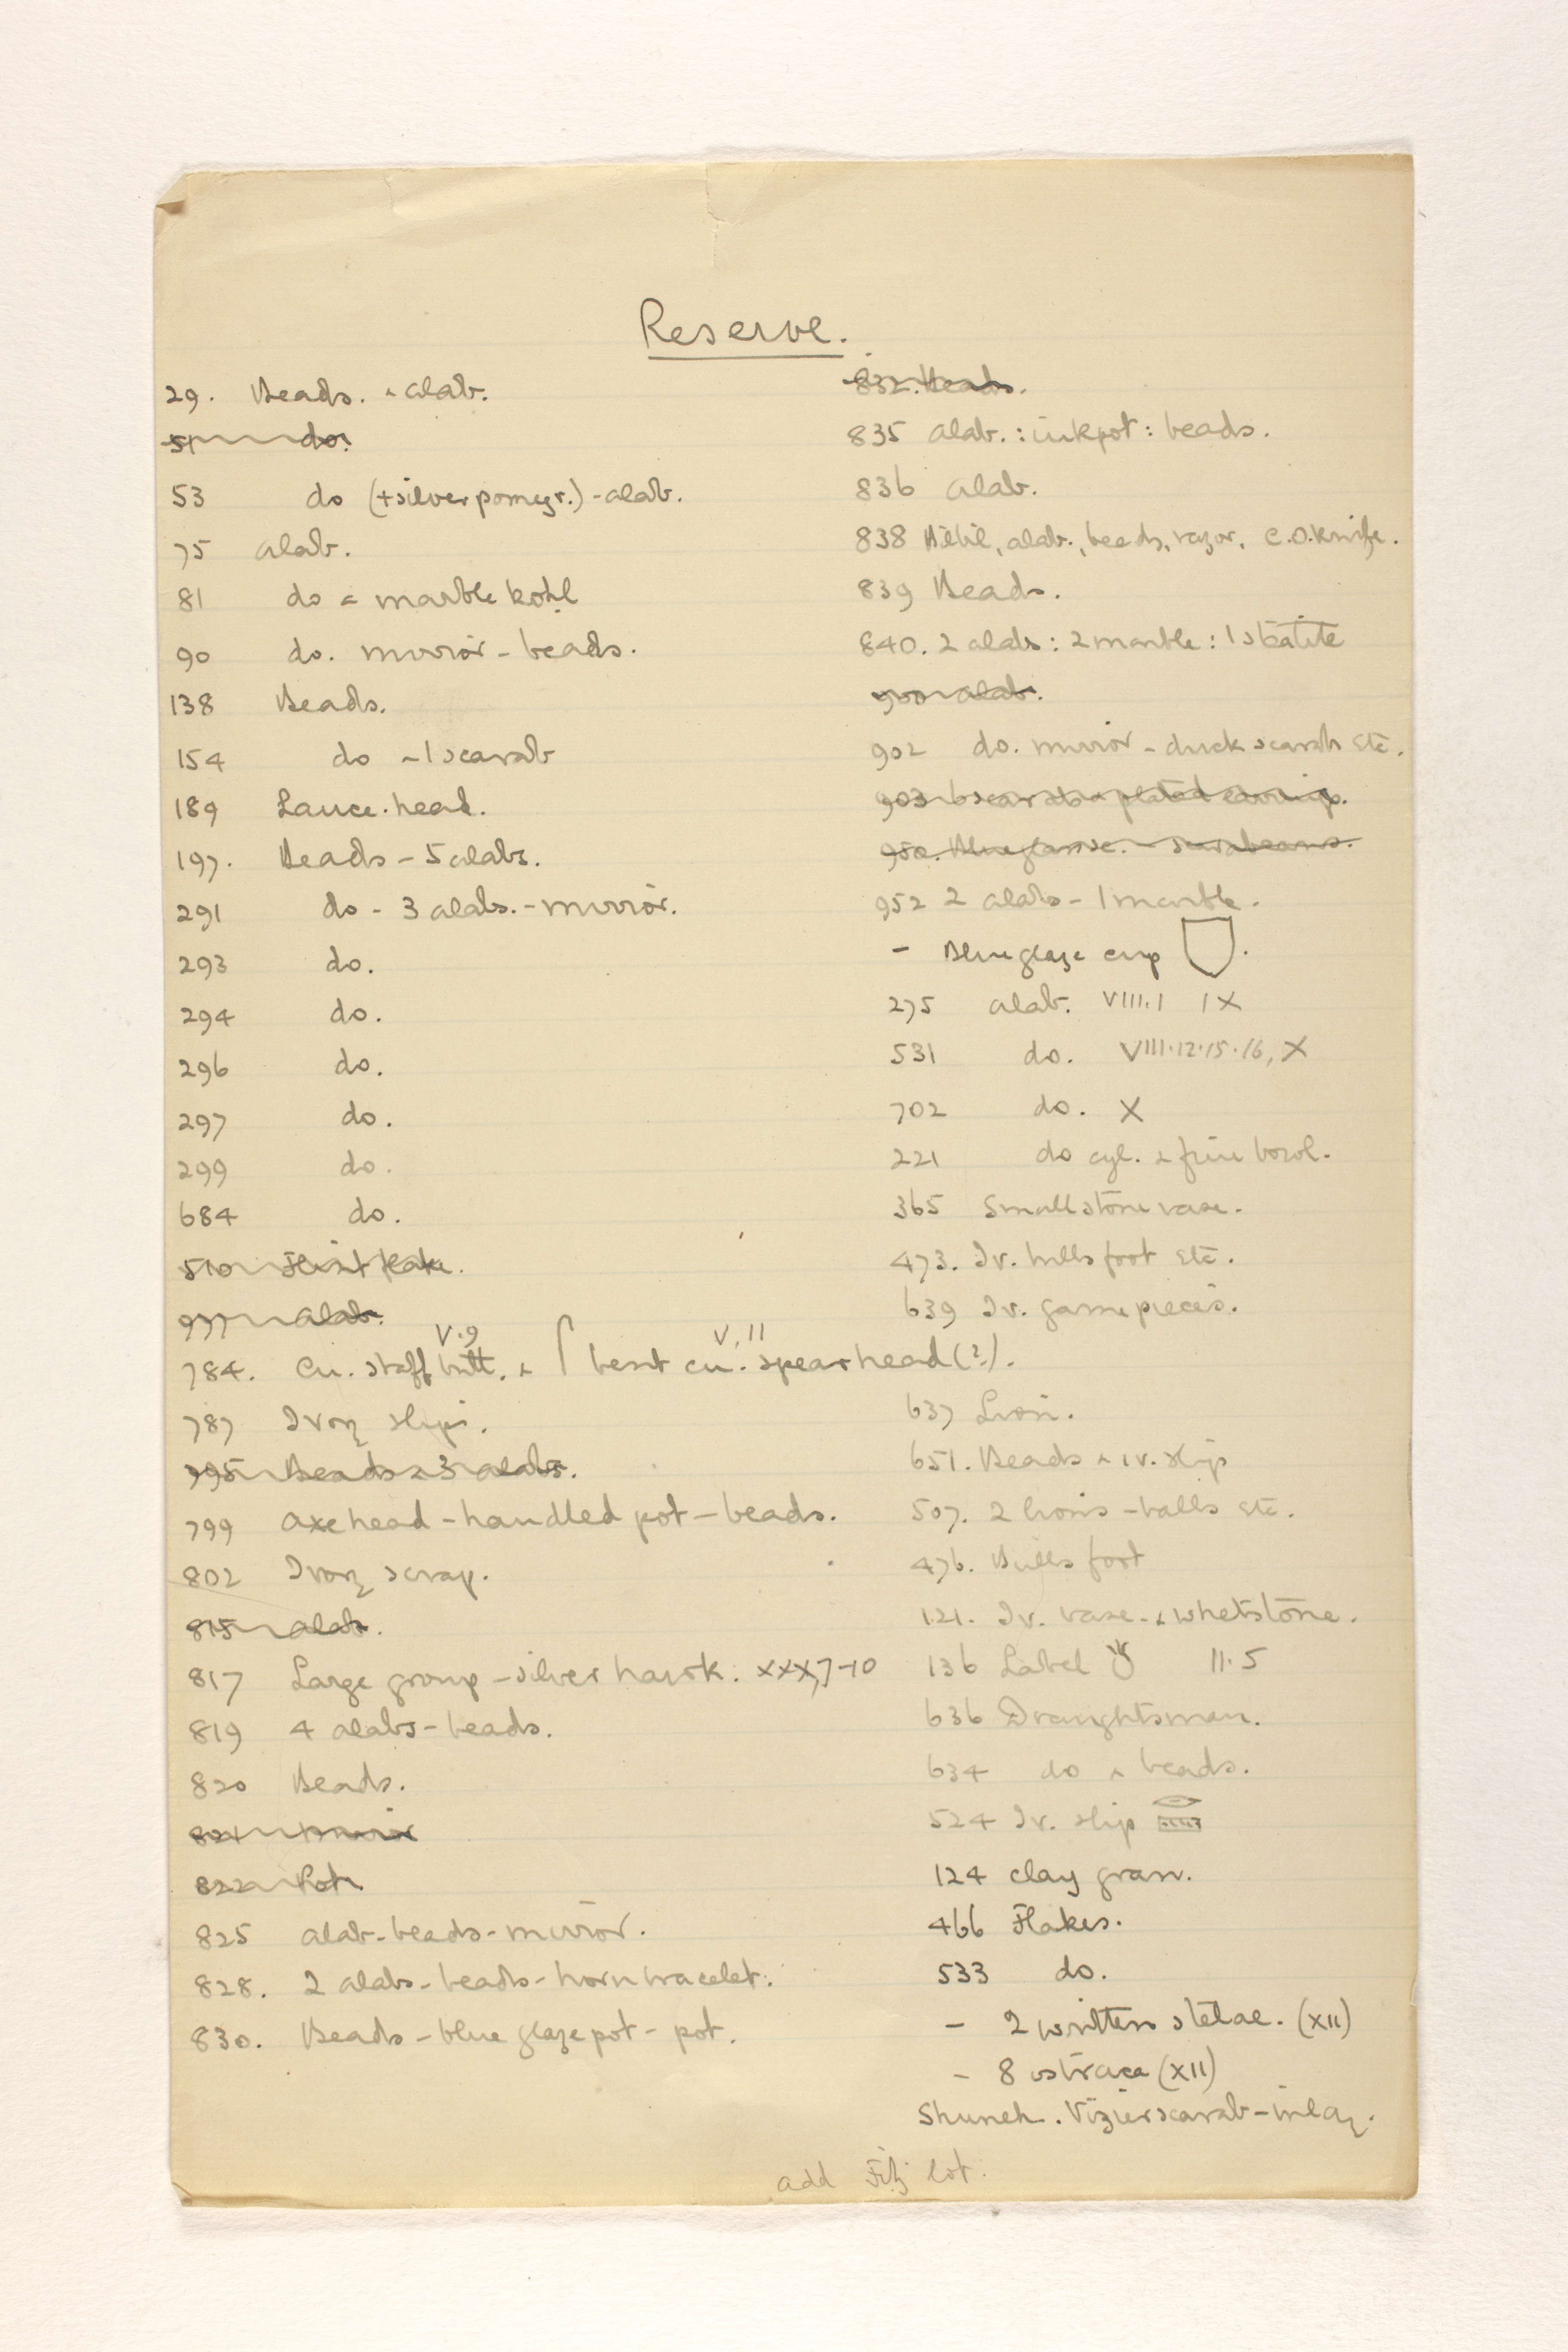 Reserve.
29. Beads. & alab.
51 do.
53 do (+silver pomegr.) - alab.
75 alab.
81 do & marble kohl
90 do. mirror - beads.
138 Beads.
154 do - 1 scarab
189 Lance-head.
197. Beads - 5 alabs.
291 do - 3 alabs. - mirror.
293 do.
294 do.
296 do.
297 do.
299 do.
684 do.
510 Flint flake.
937 alab.
V.9 V.11
784. Cu. staff butt. & bent cu. spearhead (?).
787 Ivory slips.
795 Beads & 3 alabs.
799 axehead - handled pot - beads.
802 Ivory scrap.
815 alab.
817 Large group - silver hawk. XXX, 7-10
819 4 alabs - beads.
820 Beads.
821 mirror
822 Pot.
825 alab - beads - mirror.
828. 2 alabs - beads - horn bracelet.
830. Beads - blue glaze pot - pot.
832. Beads.
835 alab. : inkpot : beads.
836 alab.
838 alab., beads, razor, C.O. knife.
839 Beads.
840. 2 alabs : 2 marble : 1 steatite
900 alab.
902 do. mirror - duck scarab etc.
903 6 scarabs & plated earrings.
950. Blue glaze.
952 2 alabs - 1 marble.
- Blue glaze cup .
275 alab. VIII.1 IX
531 do. VIII.12.15.16, X
702 do. X
221 do cyl. & fine bowl.
365 Small stone vase.
473. Iv. bulls foot etc.
639 Iv. game pieces.
637 Lion.
651. Beads & iv. slip
507. 2 lions - balls etc.
476. Bulls foot
121. Iv. vase - & whetstone.
136 Label 11.5
636 Draughtsman.
634 do & beads.
524 Iv. slip
124 clay gran.
466 Flakes.
533 do.
- 2 written stelae. (XII)
- 8 ostraca (XII)
Shuneh. Vizier scarab - inlay.
add Fitz lot.